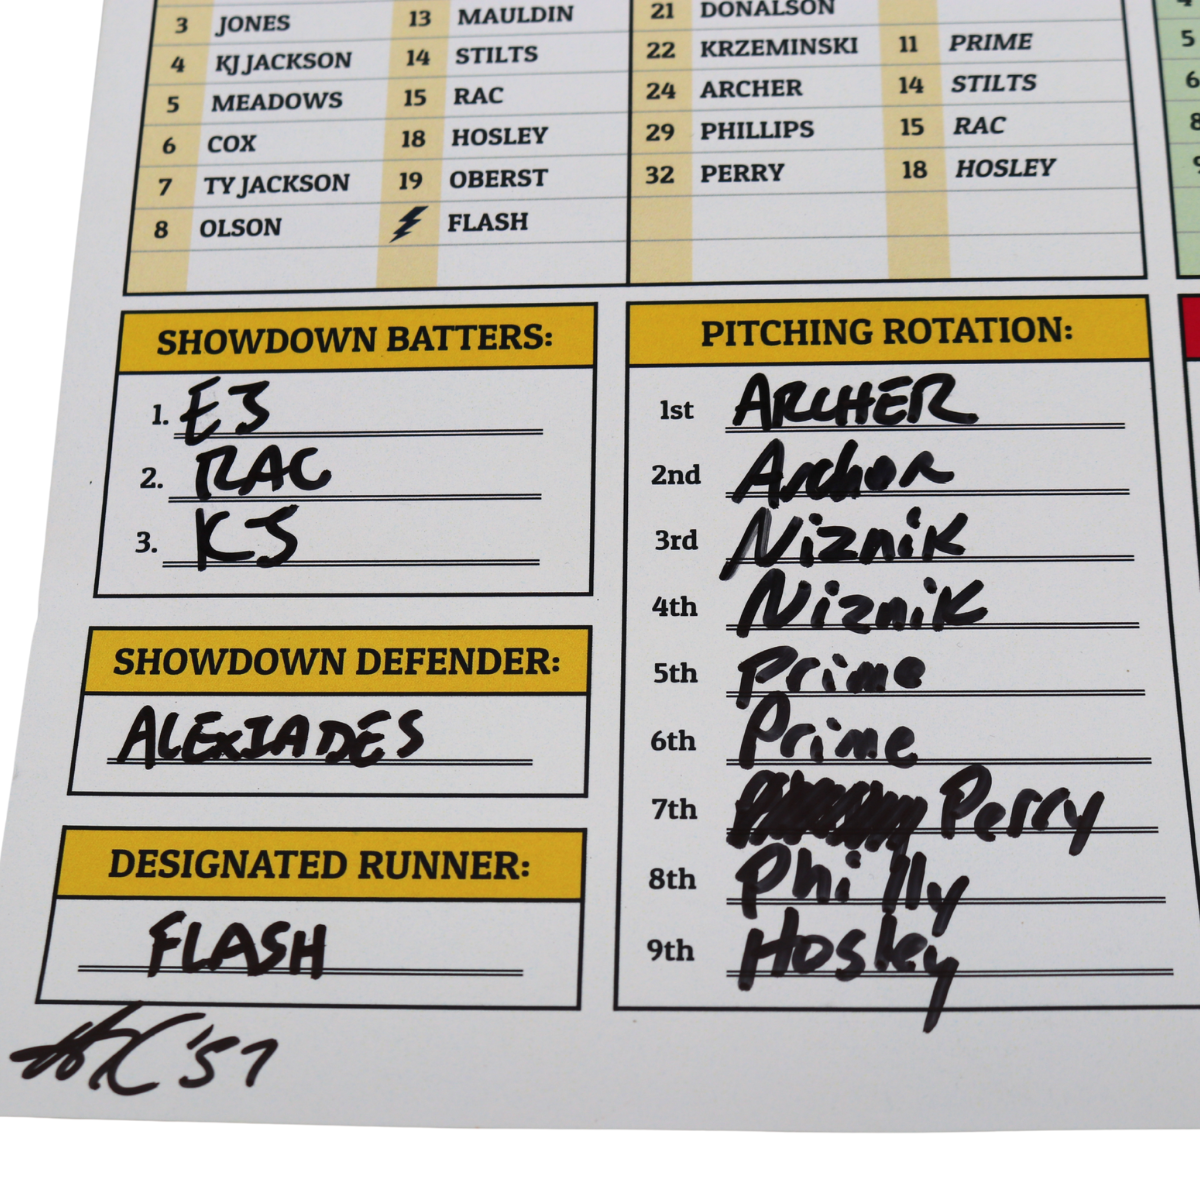 3 JONES 13 MAULDIN
4 KJ JACKSON 14 STILTS
5 MEADOWS 15 RAC
6 COX 18 HOSLEY
7 TY JACKSON 19 OBERST
8 OLSON FLASH
21 DONALSON
22 KRZEMINSKI 11 PRIME
24 ARCHER 14 STILTS
29 PHILLIPS 15 RAC
32 PERRY 18 HOSLEY
5
6
8
SHOWDOWN BATTERS:
1. EJ
2. RAC
3. KJ
SHOWDOWN DEFENDER:
ALEXIADES
DESIGNATED RUNNER:
FLASH
'57
PITCHING ROTATION:
1st ARCHER
2nd Archer
3rd Niznik
4th Niznik
5th Prime
6th Prime
7th Perry
8th Philly
9th Hosley